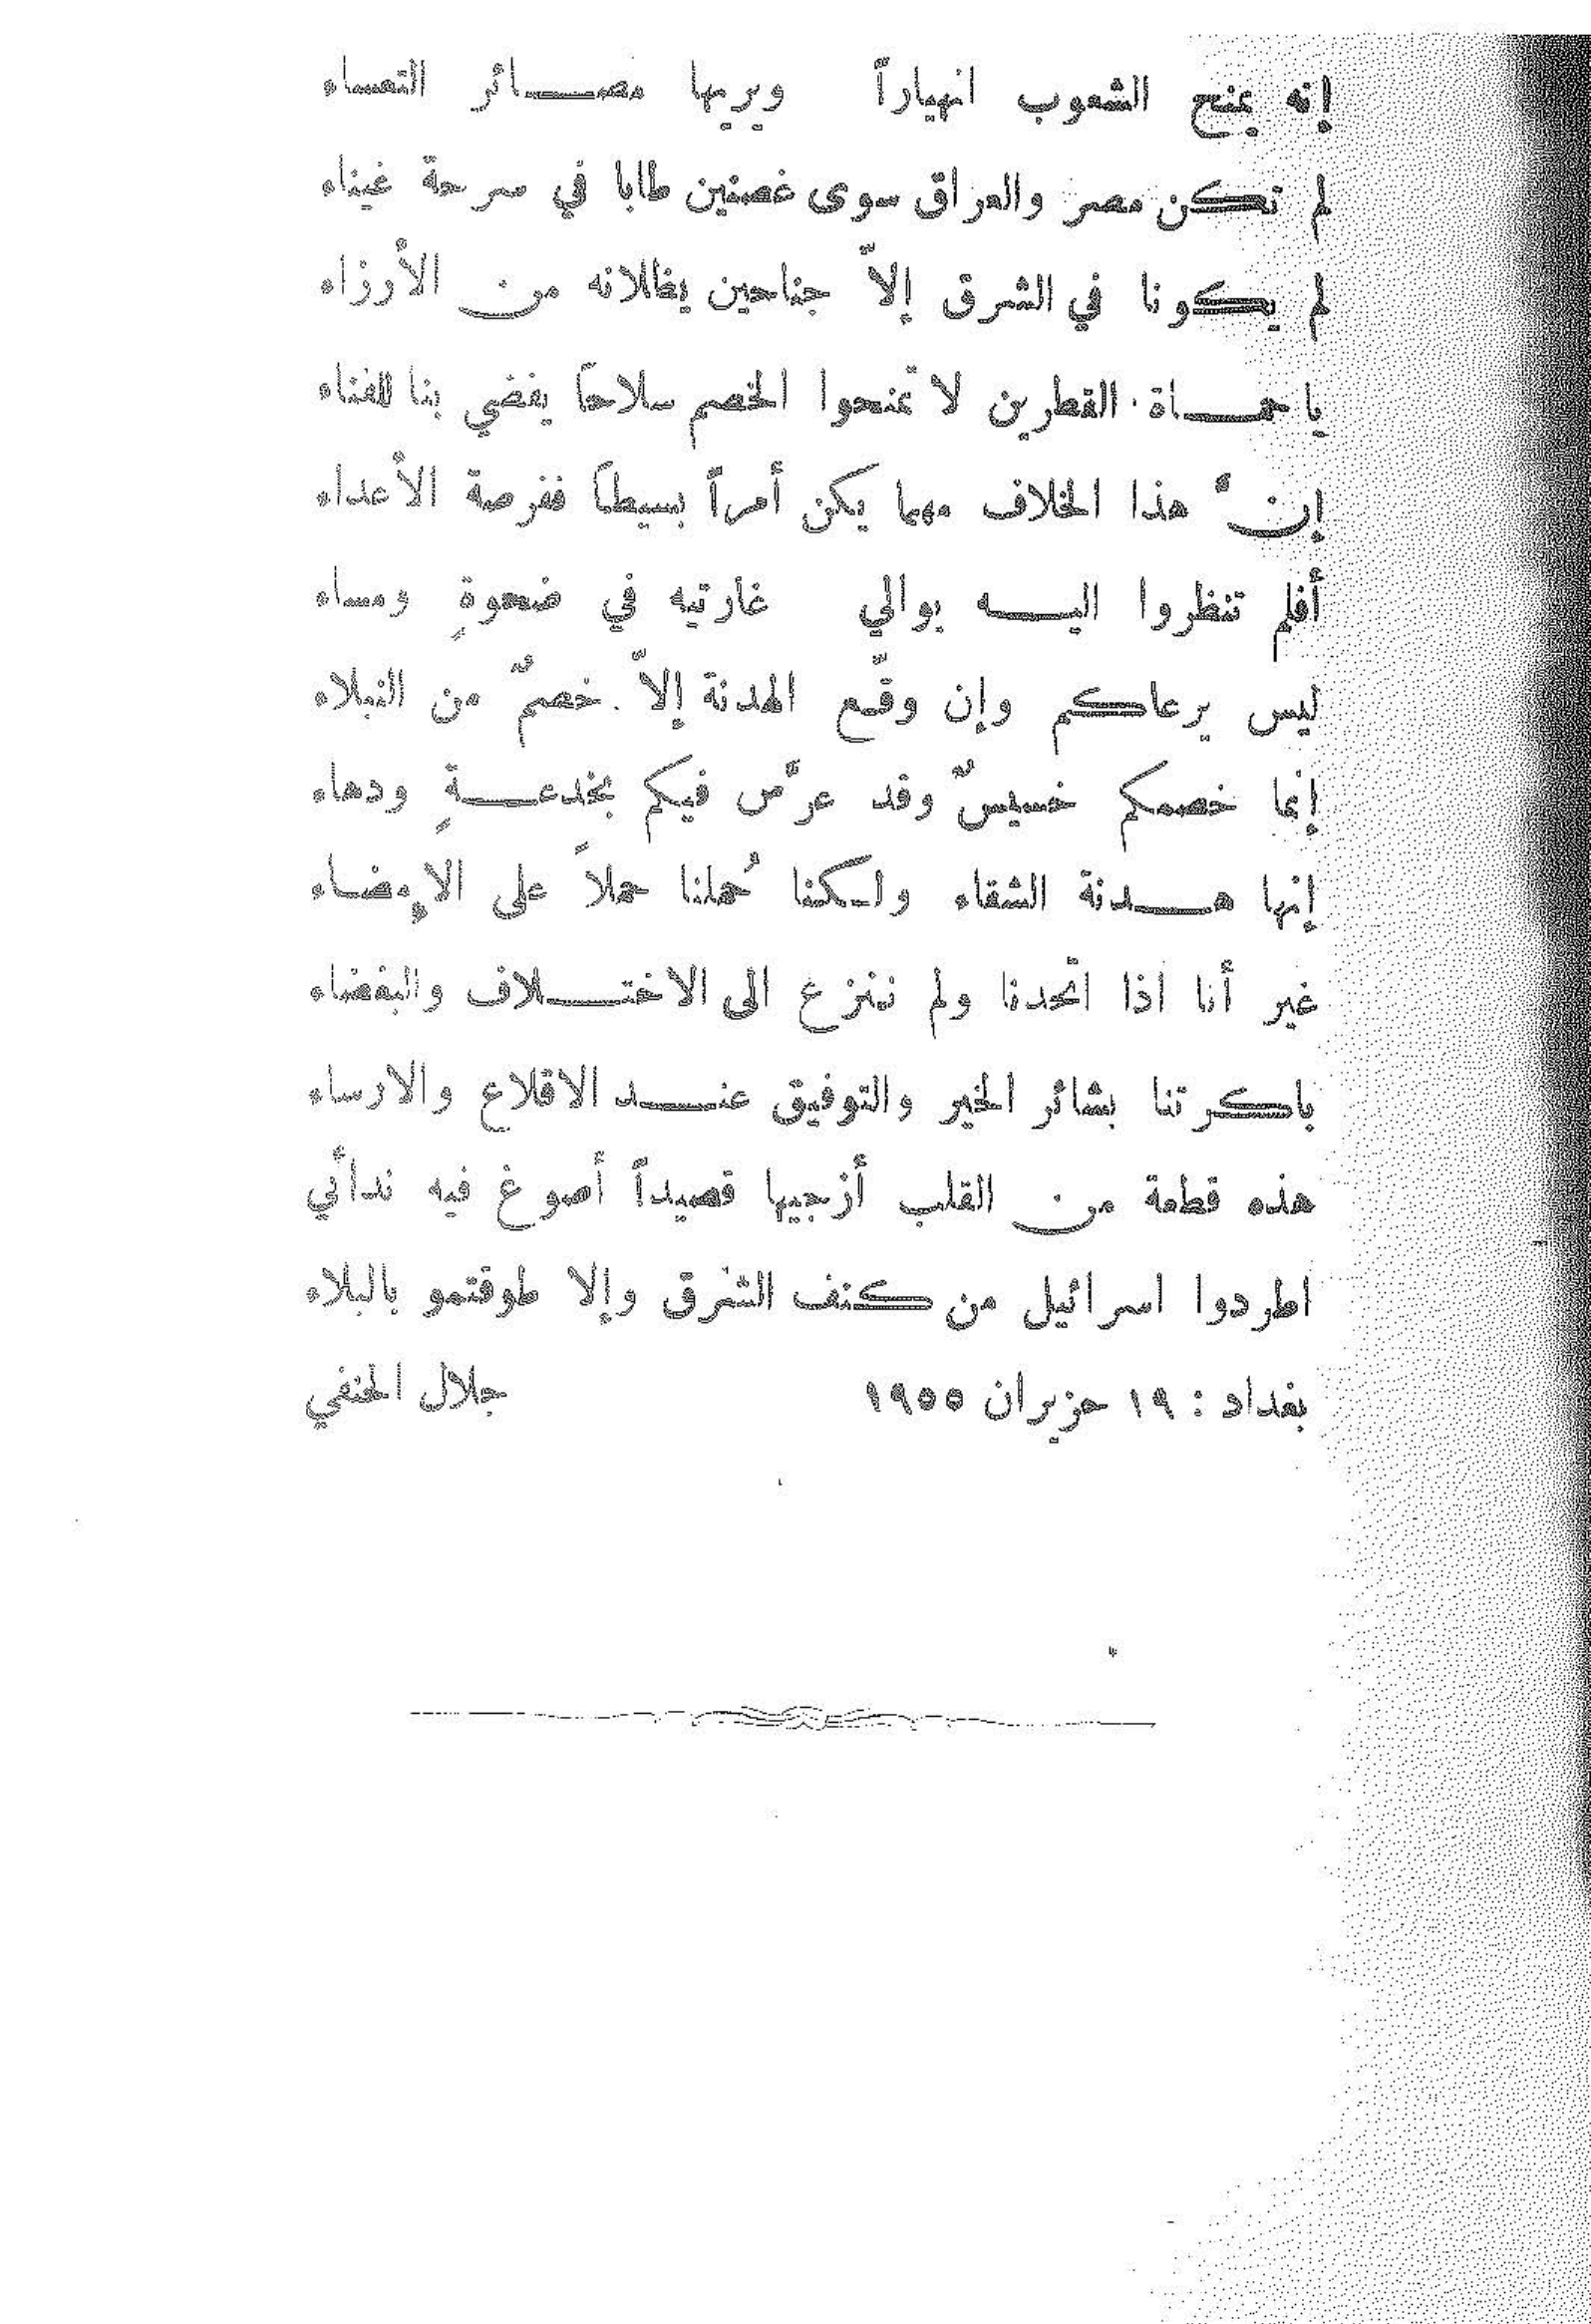 إنه يمنح الشعوب انهياراً ويريها مصائر التعساء
لم تكن مصر والعراق سوى غصنين طابا في سرحة غيناء
لم يكونا في الشرق إلاّ جناحين يظللانه من الأرزاء
يا حماة القطرين لا تمنحوا الخصم سلاحاً يفضي بنا للفناء
إنّ هذا الخلاف مهما يكن أمراً بسيطاً ففرصة الأعداء
أفلم تنظروا اليه يوالي غارتيه في ضحوةٍ ومساء
ليس يرعاكم وإن وقّع الهدنة إلاّ خصمٌ من النبلاء
إنما خصمكم خسيسٌ وقد عرّس فيكم بخدعةٍ ودهاء
إنها هدنة الشقاء ولكنا حُملنا حملاً على الإمضاء
غير أنا اذا اتّحدنا ولم ننزع الى الاختلاف والبغضاء
باكرتنا بشائر الخير والتوفيق عند الاقلاع والارساء
هذه قطعة من القلب أزجيها قصيداً أصوغ فيه ندائي
اطردوا اسرائيل من كنف الشرق وإلا طوقتمو بالبلاء
بغداد : ١٩ حزيران ١٩٥٥ جلال الحنفي